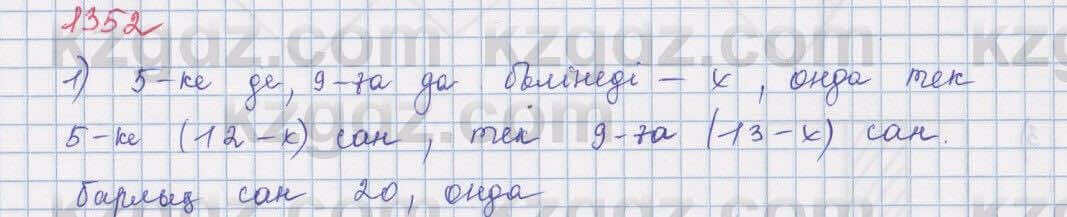 1352
1) 5-ке де, 9-ға да бөлінеді - x, онда тек
5-ке (12-x) сан, тек 9-ға (13-x) сан.
барлық сан 20, онда
kzgdz.com